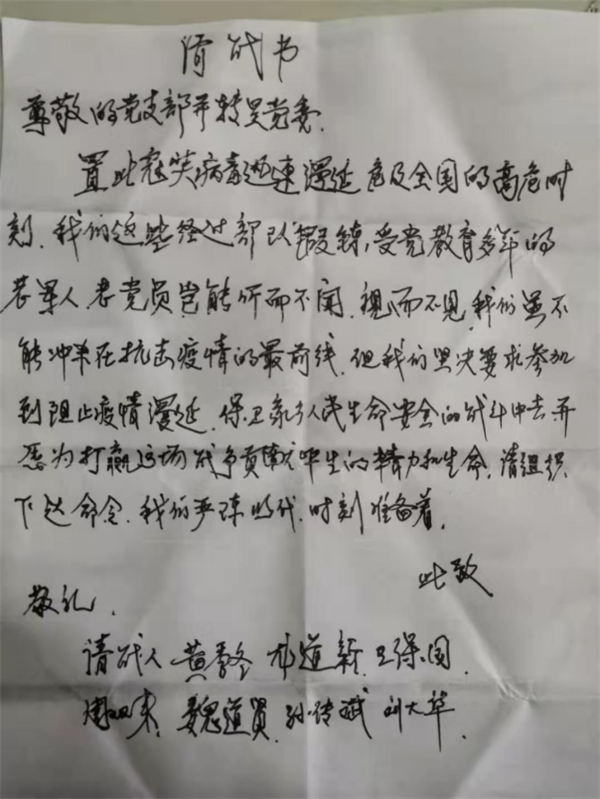 请战书
尊敬的党支部并转呈党委.
置此冠状病毒迅速漫延危及全国的高危时
刻.我们这些经过部队锻练,受党教育多年的
老军人.老党员岂能听而不闻.视而不见,我们虽不
能冲杀在抗击疫情的最前线.但我们坚决要求参加
到阻止疫情漫延.保卫家乡人民生命安全的战斗中去并
愿为打赢这场战争贡献毕生的精力和生命.请组织
下达命令.我们严阵以待.时刻准备着.
此致
敬礼.
请战人 黄 道新.卫保国.
周 来.魏道贤.孙传斌 刘大华.